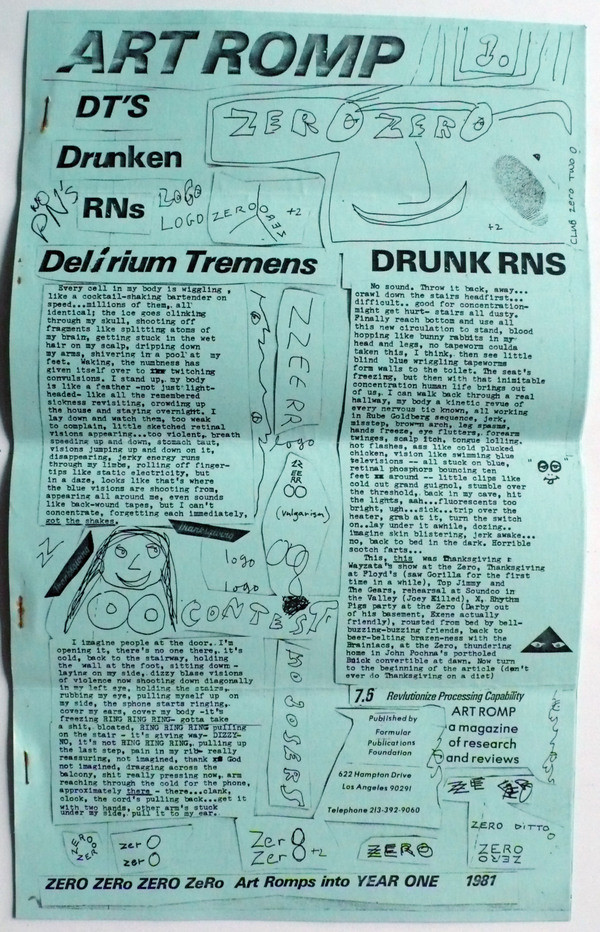 ART ROMP
1.
DT'S
Drunken
RNs
NO RN'S
LOGO
LOGO
ZERO
ZERO
+2
ZERO ZERO
+2
CLUB ZERO TWO
Delirium Tremens
Every cell in my body is wiggling,
like a cocktail-shaking bartender on
speed...millions of them, all
identical; the ice goes clinking
through my skull, shooting off
fragments like splitting atoms of
my brain, getting stuck in the wet
hair on my scalp, dripping down
my arms, shivering in a pool at my
feet. Waking, the numbness has
given itself over to xxx twitching
convulsions. I stand up, my body
is like a feather -not just light-
headed- like all the remembered
sickness revisiting, crowding up
the house and staying overnight. I
lay down and watch them, too weak
to complain, little sketched retinal
visions appearing...too violent, breath
speeding up and down, stomach taut,
visions jumping up and down on it,
disappearing, jerky energy runs
through my limbs, rolling off finger-
tips like static electricity, but
in a daze, looks like that's where
the blue visions are shooting from,
appearing all around me, even sounds
like back-wound tapes, but I can't
concentrate, forgetting each immediately,
got the shakes.
ZZEERR
logo
ZZ
EE
RR
OO
(vulgarism)
thanksgiving
thanksgiving
logo
Logo
CONTEST
I imagine people at the door. I'm
opening it, there's no one there, it's
cold, back to the stairway, holding
the wall at the foot, sitting down -
laying on my side, dizzy blase visions
of violence now shooting down diagonally
in my left eye, holding the stairs,
rubbing my eye, pulling myself up on
my side, the phone starts ringing,
cold, my ears, cover my body -it's
freezing RING RING RING- gotta take
a shit, bloated, RING RING RING pulling
on the stair - it's giving way- DIZZY-
NO, it's not RING RING RING, pulling up
the last step, pain in my rib- really
reassuring, not imagined, thank xx God
not imagined, dragging across the
balcony, shit really pressing now, arm
reaching through the cold for the phone,
approximately there - there...clank,
clock, the cord's pulling back...get it
with two hands, other arm's stuck
under my side, pull it to my ear.
NO LOSERS
DRUNK RNS
No sound. Throw it back, away...
crawl down the stairs headfirst...
difficult.. good for concentration-
might get hurt- stairs all dusty.
Finally reach bottom and use all
this new circulation to stand, blood
hopping like bunny rabbits in my
head and legs, no tapeworm coulda
taken this, I think, then see little
blind blue wriggling tapeworms
form walls to the toilet. The seat's
freezing, but then with that inimitable
concentration human life brings out
of us, I can walk back through a real
hallway, my body a kinetic revue of
every nervous tic known, all working
in Rube Goldberg sequence, jerk,
misstep, broken arch, leg spasms,
hands freeze, eye flutters, forearm
twinges, scalp itch, tongue lolling.
hot flashes, ass like cold plucked
chicken, vision like swimming blue
televisions -- all stuck on blue,
retinal phosphors bouncing ten
feet xx around -- little clips like
cold cut grand guignol, stumble over
the threshold, back in my cave, hit
the lights, aah...fluorescents too
bright, ugh...sick...trip over the
heater, grab at it, turn the switch
on..lay under it awhile, dozing..
imagine skin blistering, jerk awake...
no, back to bed in the dark. Horrible
scotch farts...
This, this was Thanksgiving:
Wayzata's show at the Zero, Thanksgiving
at Floyd's (saw Gorilla for the first
time in a while), Top Jimmy and
The Gears, rehearsal at Soundco in
the Valley (Joey Killed), X, Rhythm
Pigs party at the Zero (Darby out
of his basement, Exene actually
friendly), rousted from bed by bell-
buzzing-buzzing friends, back to
beer-belting brazen-ness with the
Brainiacs, at the Zero, thundering
home in John Pochna's portholed
Buick convertible at dawn. Now turn
to the beginning of the article (don't
ever do Thanksgiving on a diet)
7.6 Revlutionize Processing Capability
Published by
Formular
Publications
Foundation
622 Hampton Drive
Los Angeles 90291
Telephone 213-392-9060
ART ROMP
a magazine
of research
and reviews
ZERO DITTO
ZERO
ZERO
ZERO
ZERO
zer O
zer O
Zer 8
Zer 8 +2
ZERO
ZERO ZERo ZERO ZeRo Art Romps into YEAR ONE 1981